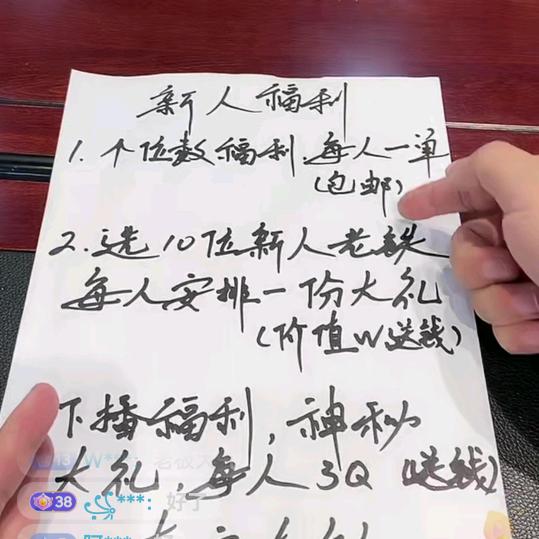 新人福利
1. 个位数福利,每人一单
(包邮)
2. 选10位新人老铁
每人安排一份大礼
(价值W送钱)
下播福利,神秘
13 W***: 老板大
大礼,每人3Q(送钱)
38 ***: 好了